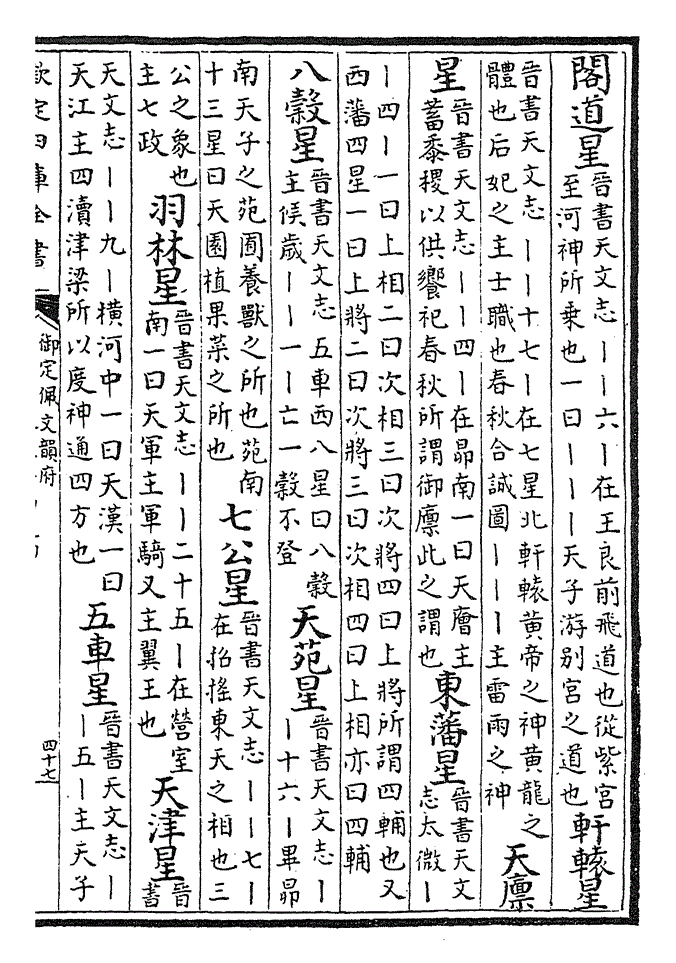 閣道星
晉書天文志丨丨六丨在王良前飛道也從紫宮
至河神所乗也一曰丨丨丨天子游别宫之道也
軒轅星
晉書天文志丨丨十七丨在七星北軒轅黄帝之神黄龍之
體也后妃之主士職也春秋合誠圖丨丨丨主雷雨之神
天廪
星
晉書天文志丨丨四丨在昴南一曰天廥主
蓄黍稷以供饗祀春秋所謂御廪此之謂也
東藩星
晉書天文
志太微丨
丨四丨一曰上相二曰次相三曰次將四曰上將所謂四輔也又
西藩四星一曰上將二曰次將三曰次相四曰上相亦曰四輔
八糓星
晉書天文志五車西八星曰八糓
主候歲丨丨一丨亡一糓不登
天苑星
晉書天文志丨
丨十六丨畢昴
南天子之苑囿養獸之所也苑南
十三星曰天園植果菜之所也
七公星
晉書天文志丨丨七丨
在招揺東天之相也三
公之象也
主七政
羽林星
晉書天文志丨丨二十五丨在營室
南一曰天軍主軍騎又主翼王也
天津星
晉
書
天文志丨丨九丨橫河中一曰天漢一曰
天江主四瀆津梁所以度神通四方也
五車星
晉書天文志丨
丨五丨主天子
欽定四庫全書
御定佩文韻府
四十七